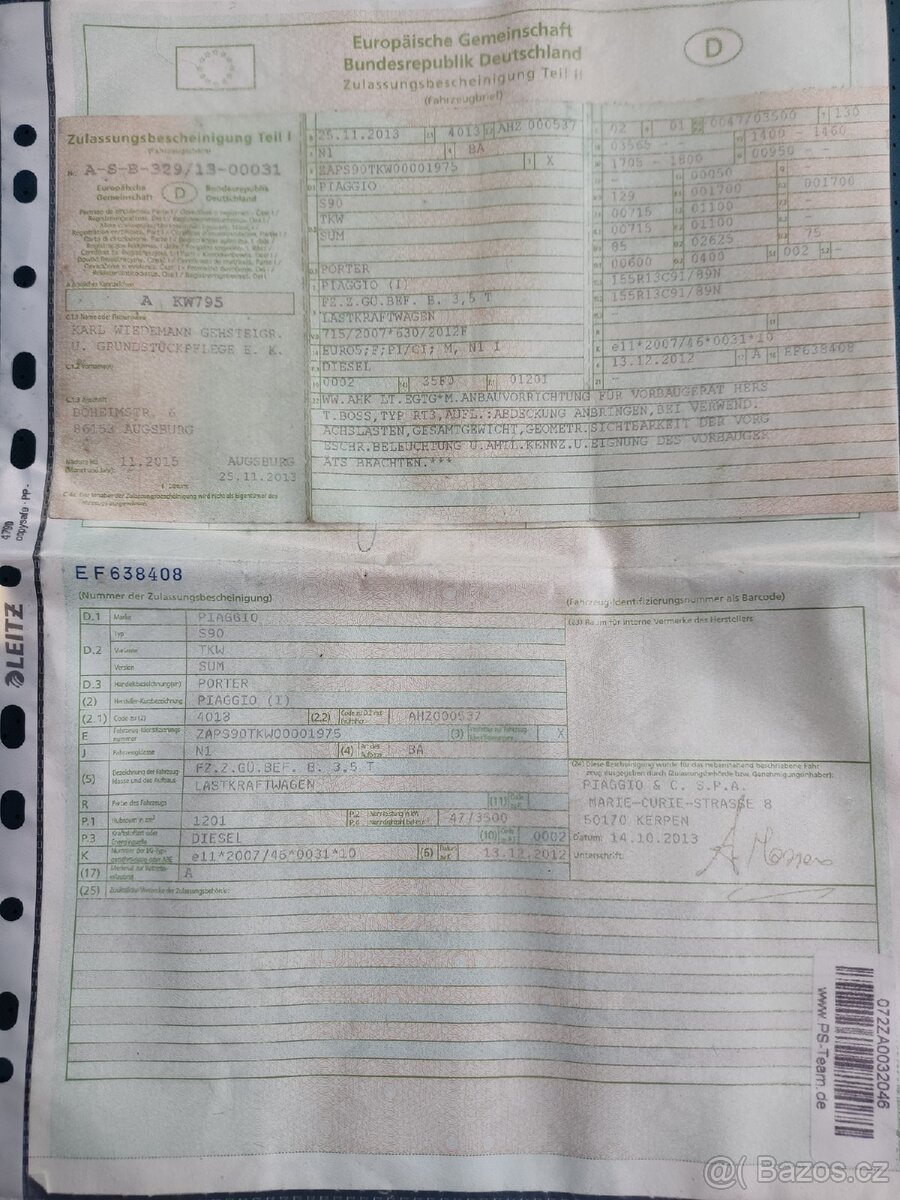 Europäische Gemeinschaft
Bundesrepublik Deutschland
Zulassungsbescheinigung Teil II
(Fahrzeugbrief)
D
Zulassungsbescheinigung Teil I
Nr. A-S-B-329/13-00031
Europäische Gemeinschaft
D
Bundesrepublik Deutschland
A KW795
KARL WIEDEMANN GEHSTEIGR.
U. GRUNDSTÜCKPFLEGE E. K.
C.1.2 Vorname(n)
C.1.3 Anschrift
BÖHEIMSTR. 6
86153 AUGSBURG
11.2015 AUGSBURG
25.11.2013
25.11.2013 4013 AHZ 000537
N1 BA
ZAPS90TKW00001975 X
PIAGGIO
S90
TKW
SUM
PORTER
PIAGGIO (I)
FZ.Z.GÜ.BEF. B. 3,5 T
LASTKRAFTWAGEN
715/2007*630/2012F
EURO5;F;PI/CI; M, N1 I
DIESEL
0002 35F0 01201
02 01 0047/03500 130
03565 1400 - 1460
1705 - 1800 00950 -
00050
129 001700 001700
00715 01100
00715 01100
85 02625 75
00600 0400 002 -
155R13C91/89N
155R13C91/89N
e11*2007/46*0031*10
13.12.2012 A EF638408
WW.AHK LT.EGTG*M.ANBAUVORRICHTUNG FÜR VORBAUGERÄT HERS
T.BOSS,TYP RT3,AUFL.:ABDECKUNG ANBRINGEN,BEI VERWEND.
ACHSLASTEN,GESAMTGEWICHT,GEOMETR.SICHTBARKEIT DER VORG
ESCHR.BELEUCHTUNG U.AMTL.KENNZ.U.EIGNUNG DES VORBAUGER
ÄTS BEACHTEN.***
EF638408
(Nummer der Zulassungsbescheinigung)
(Fahrzeug-Identifizierungsnummer als Barcode)
D.1 Marke PIAGGIO
Typ S90
D.2 Variante TKW
Version SUM
D.3 Handelsbezeichnung(en) PORTER
(2) Hersteller-Kurzbezeichnung PIAGGIO (I)
(2.1) Code zu (2) 4013 (2.2) AHZ000537
E Fahrzeug-Identifizierungsnummer ZAPS90TKW00001975 (3) X
J Fahrzeugklasse N1 (4) Art des Aufbaus BA
(5) Bezeichnung der Fahrzeugklasse und des Aufbaus FZ.Z.GÜ.BEF. B. 3,5 T
LASTKRAFTWAGEN
R Farbe des Fahrzeugs (11)
P.1 Hubraum in cm³ 1201 P.2 P.4 47/3500
P.3 Kraftstoffart oder Energiequelle DIESEL (10) 0002
K e11*2007/46*0031*10 (6) 13.12.2012
(17) Merkmal zur Betriebserlaubnis A
(25) Zusätzliche Vermerke der Zulassungsbehörde:
(23) Raum für interne Vermerke des Herstellers
(24) Diese Bescheinigung wurde für das nebenstehend beschriebene Fahrzeug ausgegeben durch (Zulassungsbehörde bzw. Genehmigungsinhaber):
PIAGGIO & C. S.P.A.
MARIE-CURIE-STRASSE 8
50170 KERPEN
Datum: 14.10.2013
Unterschrift:
072ZA0032046
www.PS-Team.de
LEITZ
4790
copysafe · PP
@( Bazos.cz